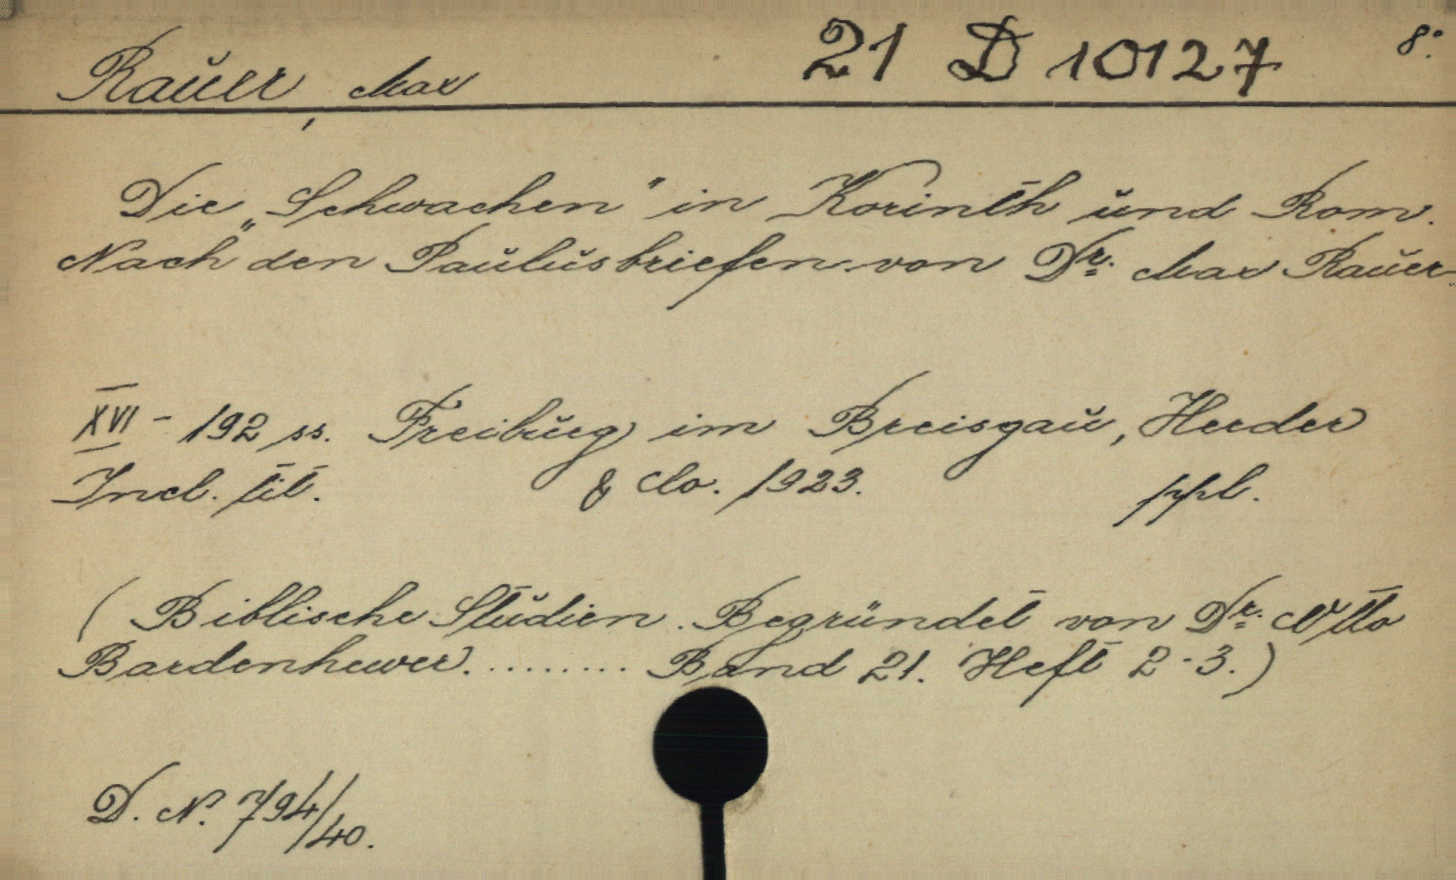 Rauer, Max 21 D 10127 8°.
Die „Schwachen" in Korinth und Rom.
Nach den Paulusbriefen von Dr. Max Rauer.
XVI - 192 ss. Freiburg im Breisgau, Herder
Incl. tit. & Co. 1923. ppl.
(Biblische Studien. Begründet von Dr. Otto
Bardenhewer. ........ Band 21. Heft 2-3.)
D. N. 794/40.